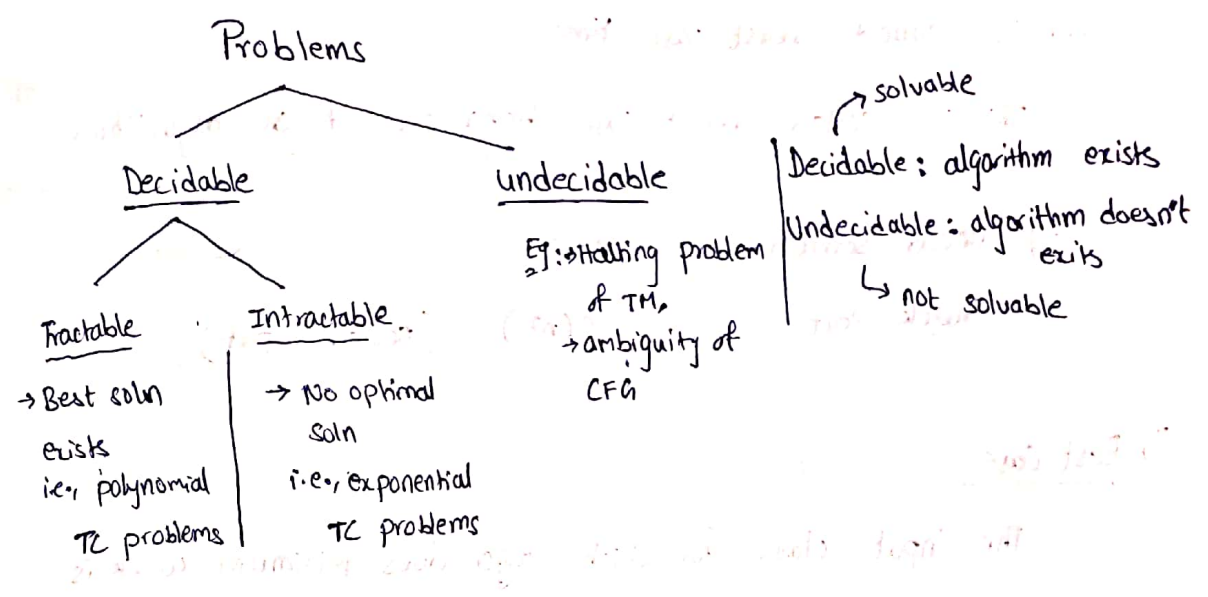 Problems
Decidable
undecidable
Tractable
Intractable
→ Best soln
exists
i.e., polynomial
TC problems
→ No optimal
soln
i.e., exponential
TC problems
Eg:→Halting problem
of TM,
→ambiguity of
CFG
solvable
Decidable: algorithm exists
Undecidable: algorithm doesn't
exits
not solvable